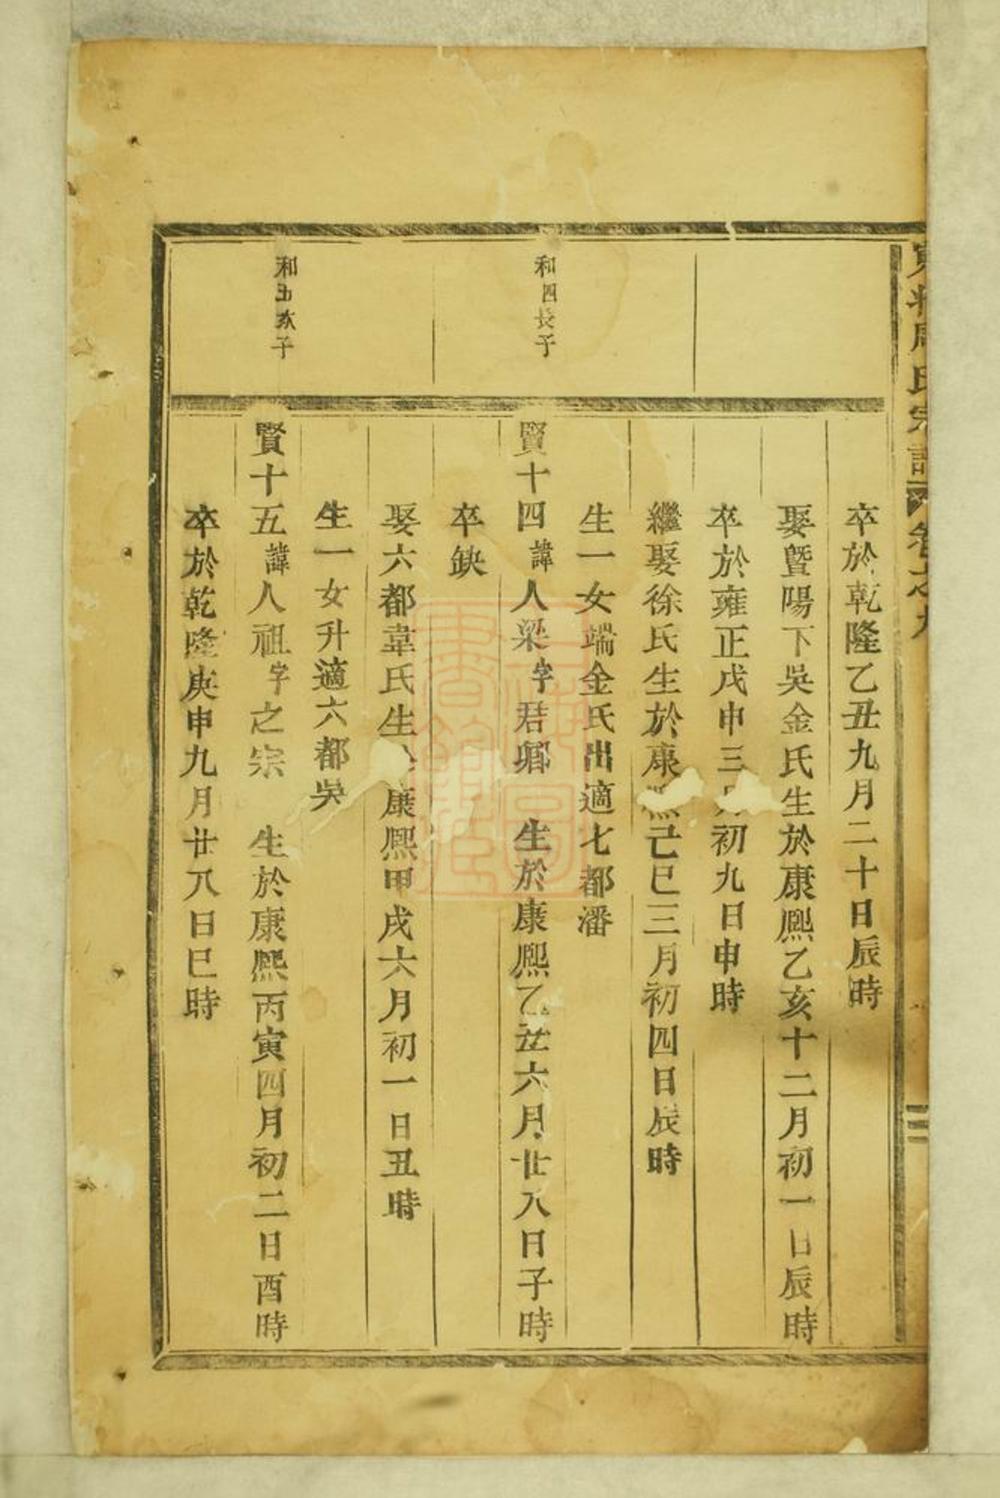 周氏宗譜 卷之九
卒於乾隆乙丑九月二十日辰時
娶暨陽下吳金氏生於康熙乙亥十二月初一日辰時
卒於雍正戊申三月初九日申時
繼娶徐氏生於康熙己巳三月初四日辰時
生一女端金氏出適七都潘
和四長子
賢十四諱人梁字君鄉 生於康熙乙丑六月廿八日子時
卒缺
娶六都韋氏生於康熙甲戌六月初一日丑時
生一女升適六都吳
和五次子
賢十五諱人祖字之宗 生於康熙丙寅四月初二日酉時
卒於乾隆庚申九月廿八日巳時